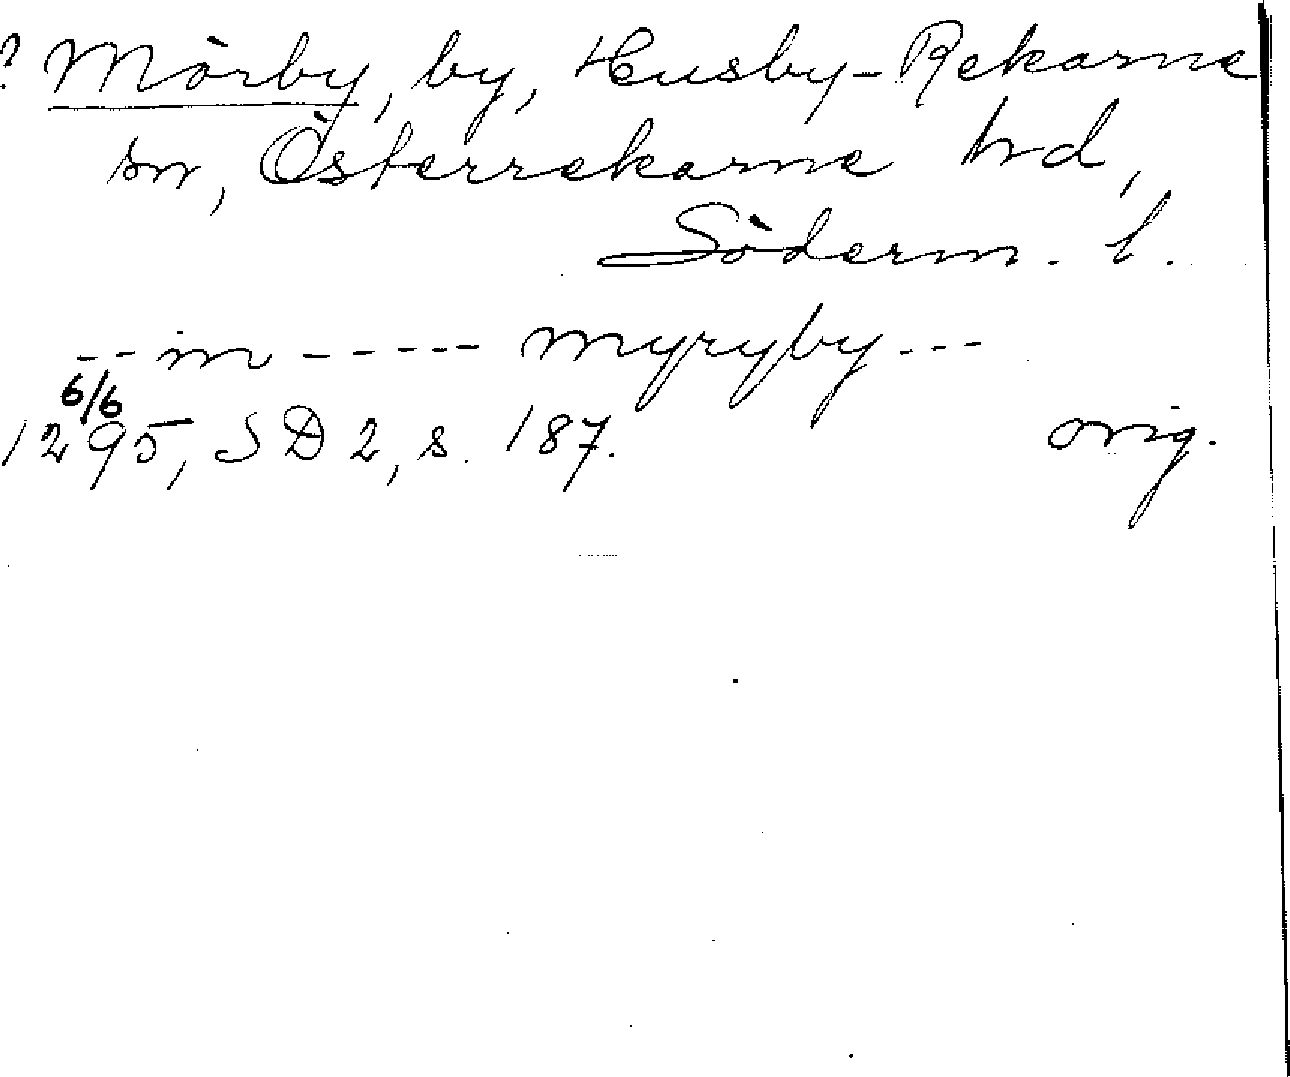 ? Mörby, by, Husby-Rekarne
sn, Österrekarne hd,
Söderm. l.
-- in ----- myryby ---
6/6
1295, SD 2, s. 187. orig.